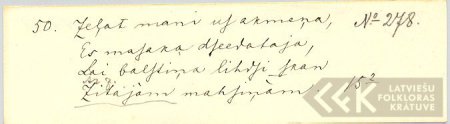 50. Zeļat mani us akmeņa, № 278.
Es masaka dseedataja,
Lai balstiņa lihdsi skan
Zitajàm mahsiņàm. 15²
LATVIEŠU
FOLKLORAS
KRĀTUVE